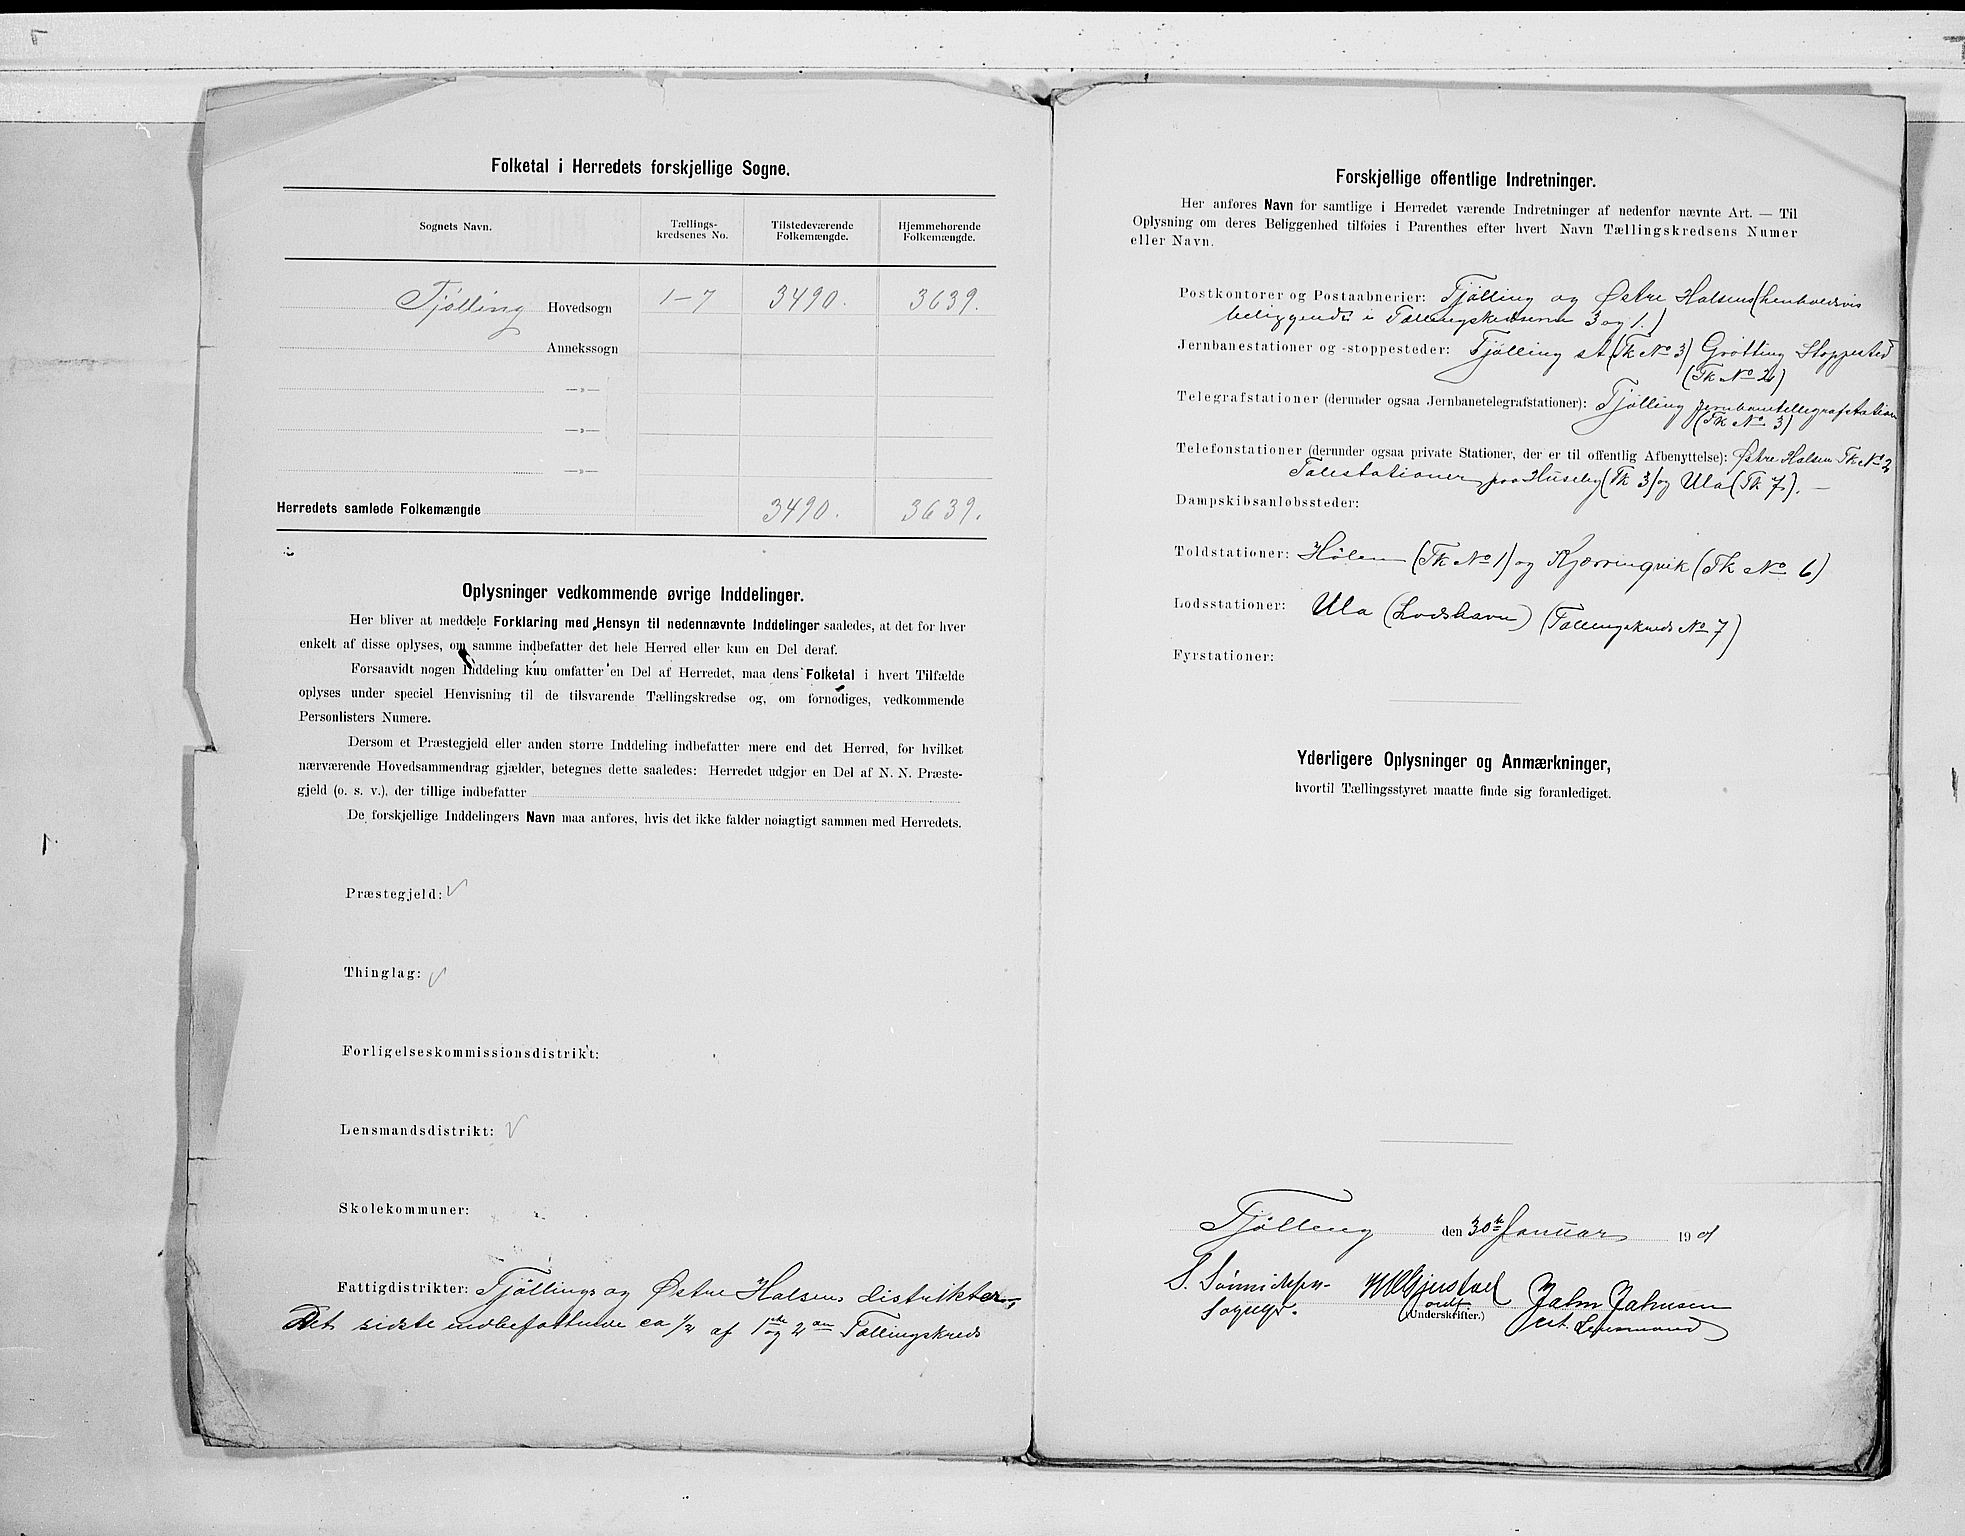 Folketal i Herredets forskjellige Sogne.
Sognets Navn. Tællings-kredsenes No. Tilstedeværende Folkemængde. Hjemmehørende Folkemængde.
Tjølling Hovedsogn 1-7 3490. 3639.
Annekssogn
—»—
—»—
—»—
Herredets samlede Folkemængde 3490. 3639.
Oplysninger vedkommende øvrige Inddelinger.
Her bliver at meddele Forklaring med Hensyn til nedennævnte Inddelinger saaledes, at det for hver
enkelt af disse oplyses, om samme indbefatter det hele Herred eller kun en Del deraf.
Forsaavidt nogen Inddeling kun omfatter en Del af Herredet, maa dens Folketal i hvert Tilfælde
oplyses under speciel Henvisning til de tilsvarende Tællingskredse og, om fornødiges, vedkommende
Personlisters Numere.
Dersom et Præstegjeld eller anden større Inddeling indbefatter mere end det Herred, for hvilket
nærværende Hovedsammendrag gjælder, betegnes dette saaledes: Herredet udgjør en Del af N. N. Præste-
gjeld (o. s. v.), der tillige indbefatter
De forskjellige Inddelingers Navn maa anføres, hvis det ikke falder nøiagtigt sammen med Herredets.
Præstegjeld: √
Thinglag: √
Forligelseskommissionsdistrikt:
Lensmandsdistrikt: √
Skolekommuner:
Fattigdistrikter: Tjøllings og Østre Halsens distrikter,
Det sidste indbefattende ca 1/2 af 1ste og 2den Tællingskreds
Forskjellige offentlige Indretninger.
Her anføres Navn for samtlige i Herredet værende Indretninger af nedenfor nævnte Art. — Til
Oplysning om deres Beliggenhed tilføies i Parenthes efter hvert Navn Tællingskredsens Numer
eller Navn.
Postkontorer og Postaabnerier: Tjølling og Østre Halsens (henholdsvis
beliggende i Tællingskredsene 3 og 1.)
Jernbanestationer og -stoppesteder: Tjølling st (Tk No 3) Grøtting Stoppested
(Tk No 2)
Telegrafstationer (derunder ogsaa Jernbanetelegrafstationer): Tjølling Jernbanetelegrafstation
(Tk No 3)
Telefonstationer (derunder ogsaa private Stationer, der er til offentlig Afbenyttelse): Østre Halsen Tk No 2
Talestationer paa Huseby (Tk 3) og Ula (Tk 7). —
Dampskibsanløbssteder:
Toldstationer: Hølen (Tk No 1) og Kjærringvik (Tk No 6)
Lodsstationer: Ula (Lodshavn) (Tællingskreds No 7)
Fyrstationer:
Yderligere Oplysninger og Anmærkninger,
hvortil Tællingsstyret maatte finde sig foranlediget.
Tjølling den 30te Januar 1901
S. Sognepr. ordf. Jahn Jahnsen
(Underskrifter.) cst. Lensmand